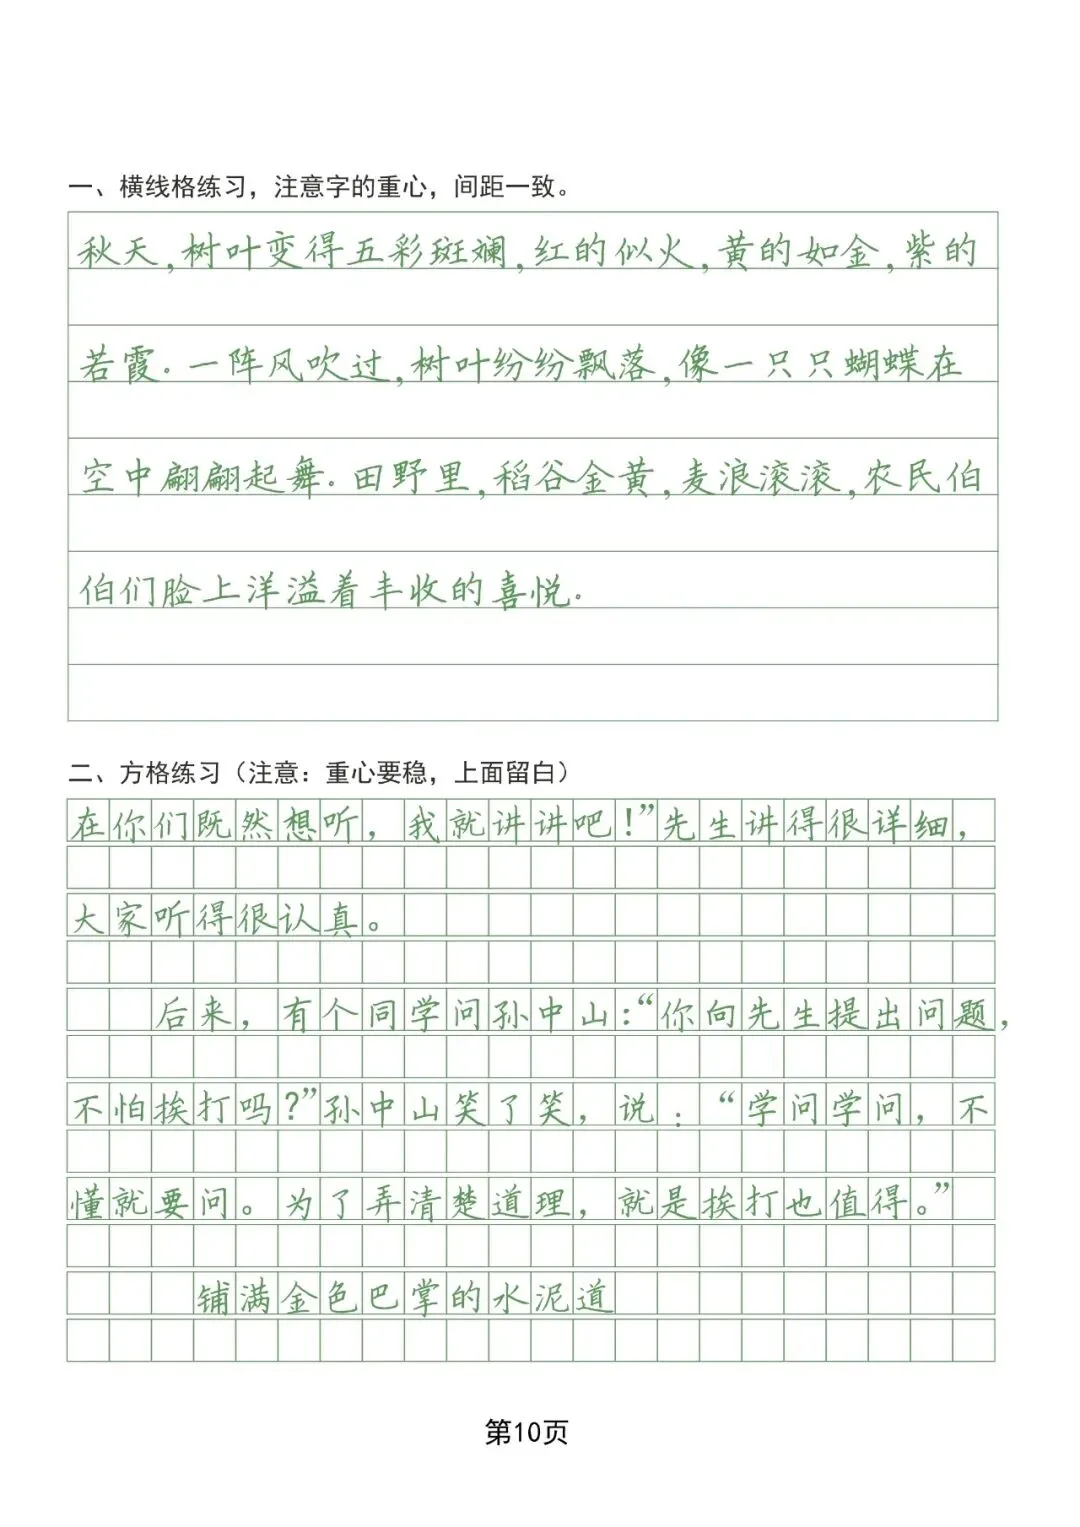 一、横线格练习，注意字的重心，间距一致。
秋天,树叶变得五彩斑斓,红的似火,黄的如金,紫的
若霞.一阵风吹过,树叶纷纷飘落,像一只只蝴蝶在
空中翩翩起舞.田野里,稻谷金黄,麦浪滚滚,农民伯
伯们脸上洋溢着丰收的喜悦.
二、方格练习（注意：重心要稳，上面留白）
在你们既然想听，我就讲讲吧！”先生讲得很详细，
大家听得很认真。
后来，有个同学问孙中山：“你向先生提出问题，
不怕挨打吗？”孙中山笑了笑，说：“学问学问，不
懂就要问。为了弄清楚道理，就是挨打也值得。”
铺满金色巴掌的水泥道
第10页